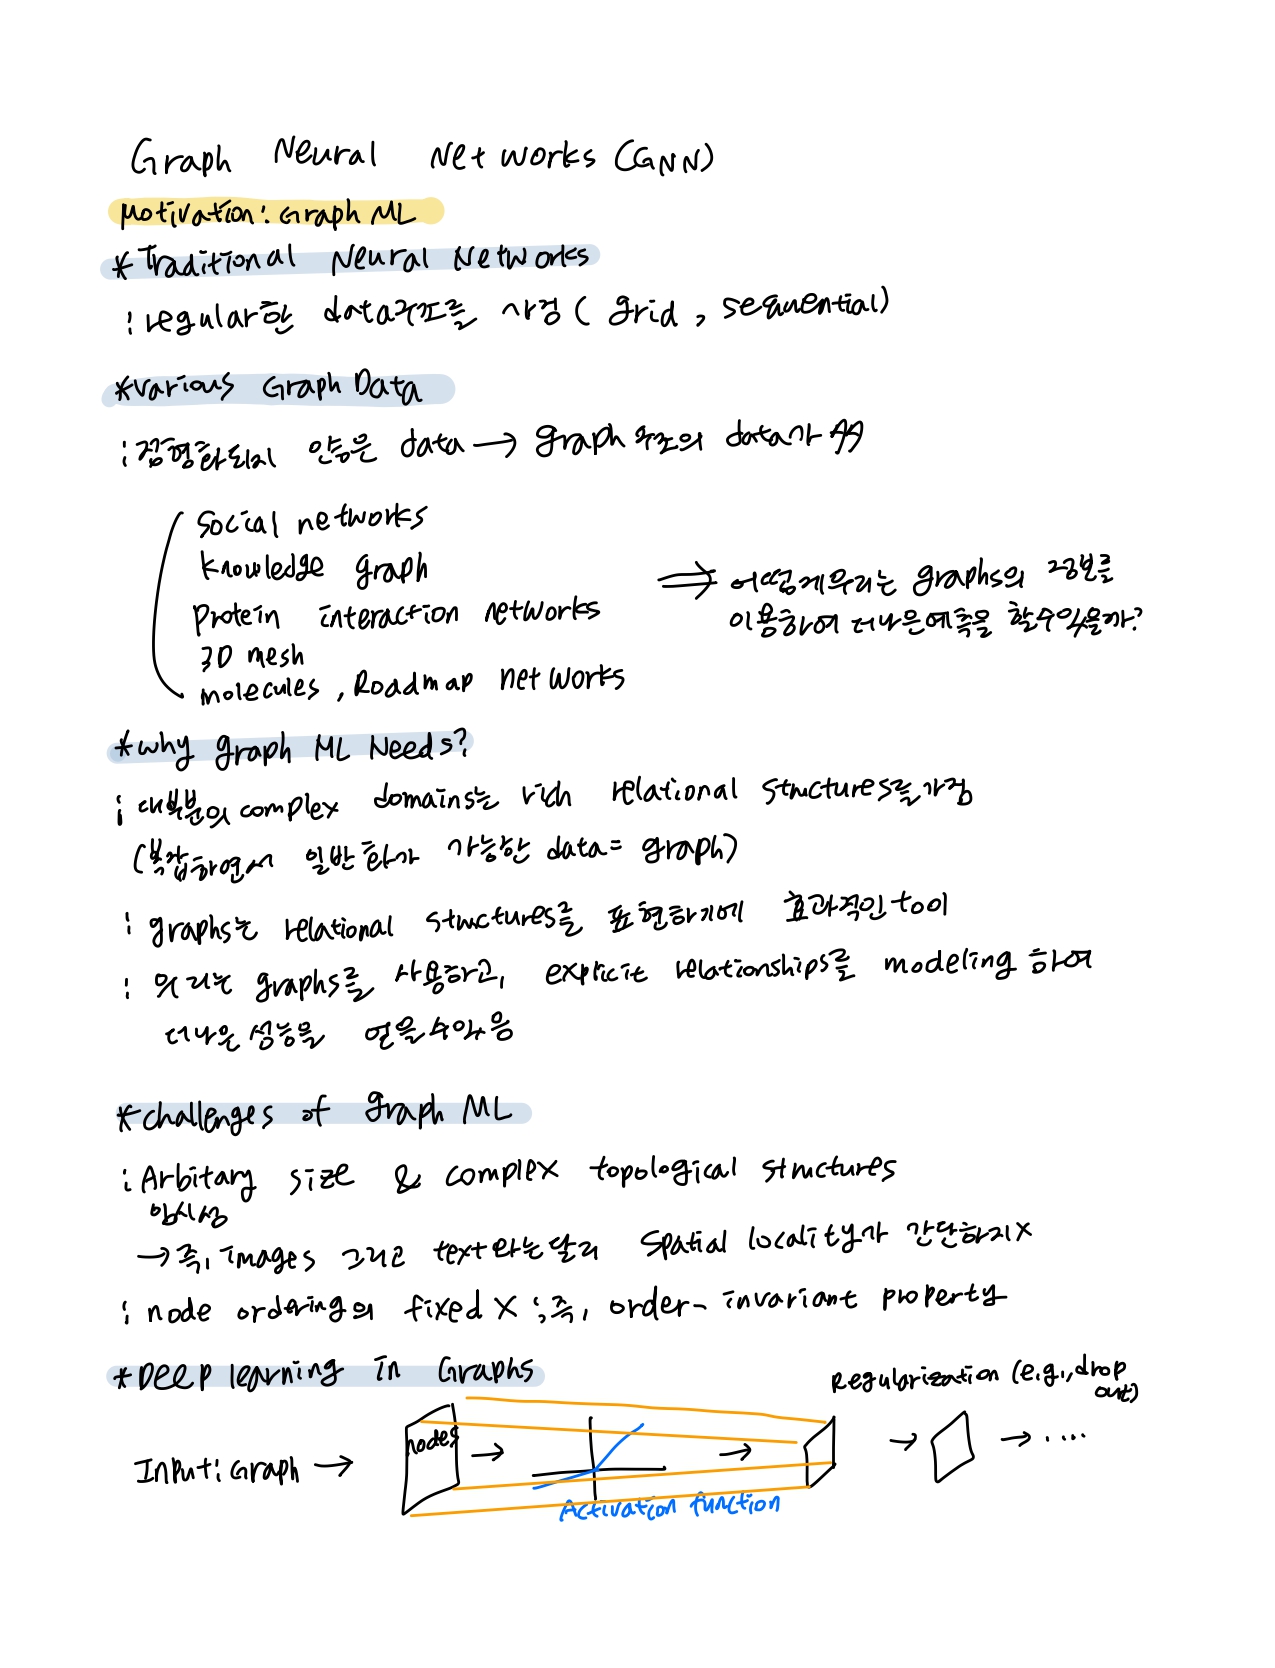 Graph Neural Networks (GNN)
Motivation: Graph ML
*Traditional Neural Networks
: regular한 data구조를 가정 ( grid , sequential)
*Various Graph Data
: 정형화되지 않은 data → graph 구조의 data가 多多
Social networks
Knowledge graph
Protein interaction networks
3D mesh
molecules , Roadmap networks
⇒ 어떻게 우리는 graphs의 정보를
이용하여 더나은 예측을 할수있을까?
*Why graph ML Needs?
: 대부분의 complex domains는 rich relational structures를 가짐
(복잡하면서 일반화가 가능한 data = graph)
: graphs는 relational structures를 표현하기에 효과적인 tool
: 우리는 graphs를 사용하고, explicit relationships를 modeling 하여
더나은 성능을 얻을수있음
*Challenges of graph ML
: Arbitary size & complex topological structures
임시성
→ 즉, images 그리고 text와는 달리 spatial locality가 간단하지 X
: node ordering의 fixed X ; 즉, order-invariant property
*Deep learning in Graphs
Regularization (e.g., drop
out)
Input: Graph → nodes → → → → ....
Activation function